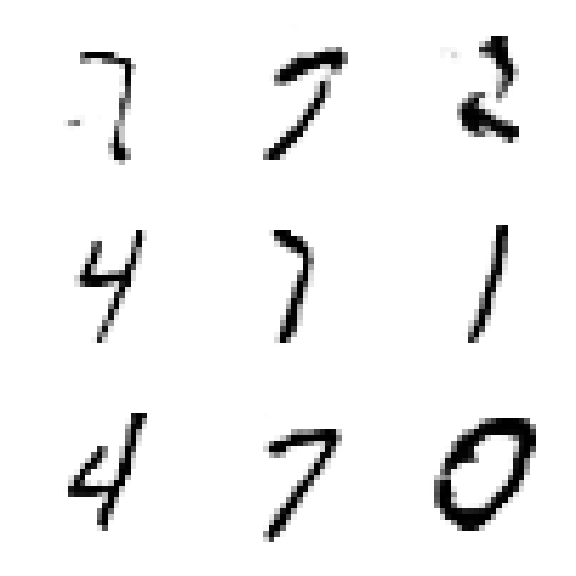 7 7 2
4 7 1
4 7 0